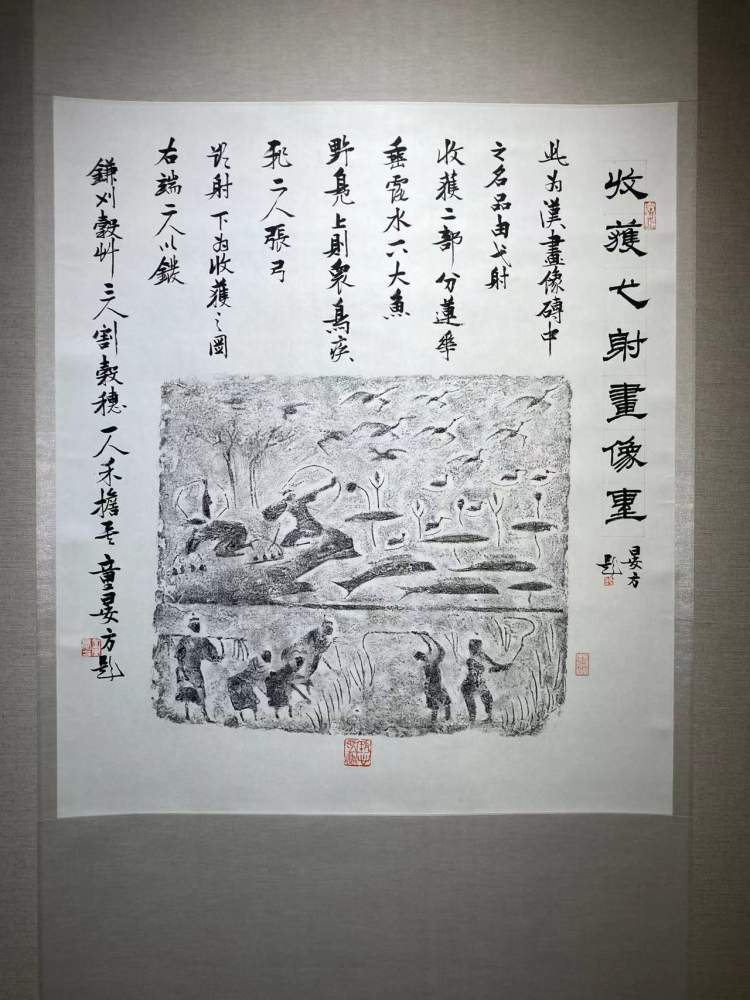 收獲弋射畫像重
晏方
題
此为漢畫像磚中
之名品由弋射
收獲二部分蓮華
垂露水下大魚
野凫上則衆鳥疾
飛二人張弓
射下为收獲之图
右端二人以鐮
鐮刈穀艸三人割穀穗一人禾擔 童晏方題